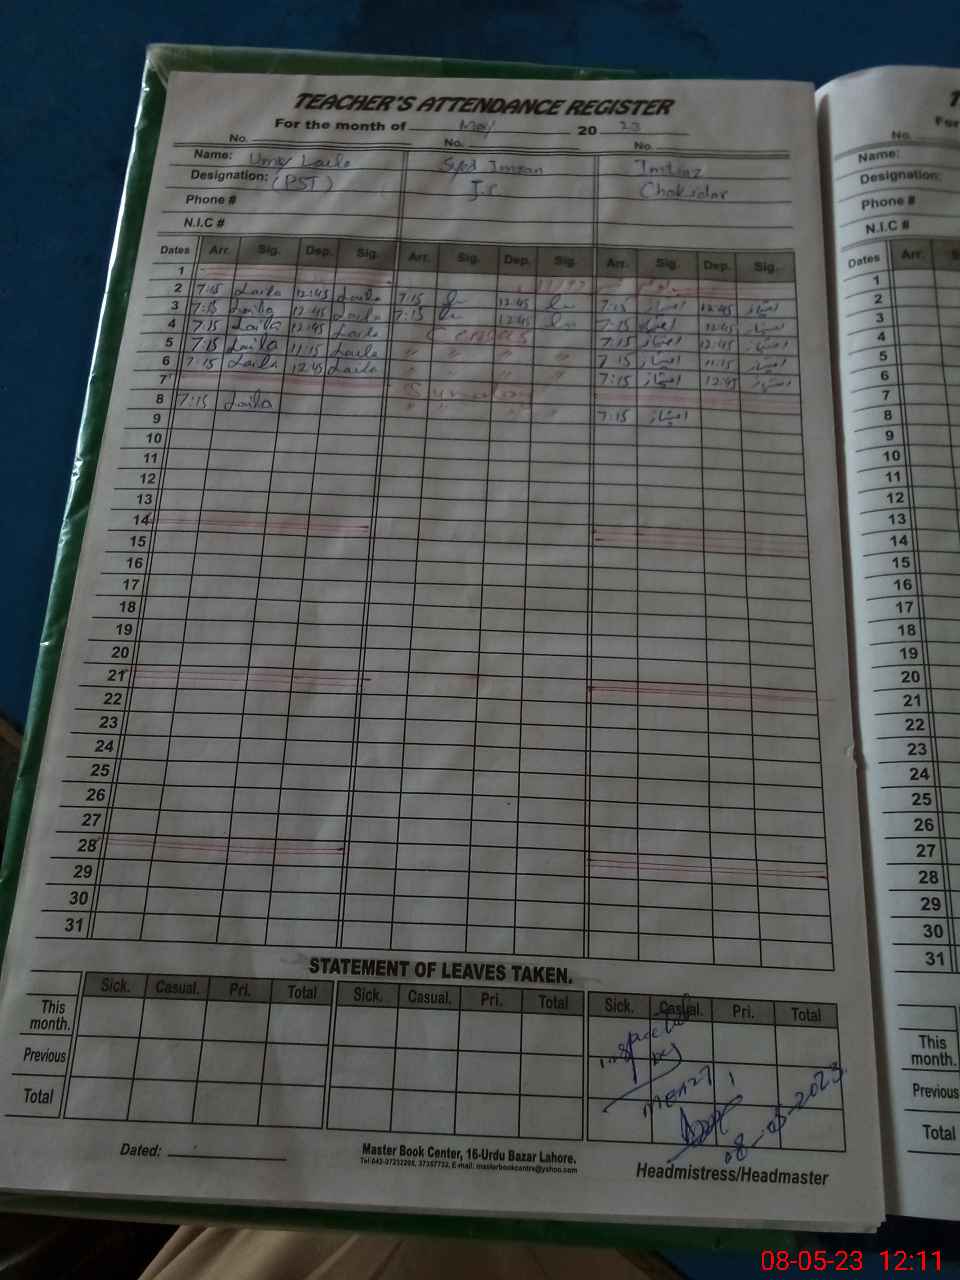 TEACHER'S ATTENDANCE REGISTER
For the month of May 20 23
No. No. No.
Name: Umy Laila Syed Imran Imtiaz
Designation: (PST) Chokidar
Phone #
N.I.C #
Dates Arr. Sig. Dep. Sig. Arr. Sig. Dep. Sig. Arr. Sig. Dep. Sig.
1
2 7:15 Laila 12:45 Laila 7:15 12:45 7:15 امتیاز 12:45 امتیاز
3 7:15 Laila 12:45 Laila 7:15 12:45 7:15 امتیاز 12:45 امتیاز
4 7:15 Laila 12:45 Laila Census 7:15 امتیاز 12:45 امتیاز
5 7:15 Laila 11:15 Laila " " " " 7:15 امتیاز 11:15 امتیاز
6 7:15 Laila 12:45 Laila " " " " 7:15 امتیاز 12:45 امتیاز
7 Sunday
8 7:15 Laila " " 7:15 امتیاز
9
10
11
12
13
14
15
16
17
18
19
20
21
22
23
24
25
26
27
28
29
30
31
STATEMENT OF LEAVES TAKEN.
Sick. Casual. Pri. Total Sick. Casual. Pri. Total Sick. Casual. Pri. Total
This month.
Previous
Total
inspected
by
MEA27
08-05-2023
Dated:
Master Book Center, 16-Urdu Bazar Lahore.
Tel:042-37232208, 37357732, E-mail: masterbookcentre@yahoo.com
Headmistress/Headmaster
T
For
No.
Name:
Designation:
Phone #
N.I.C #
Dates Arr. S
1
2
3
4
5
6
7
8
9
10
11
12
13
14
15
16
17
18
19
20
21
22
23
24
25
26
27
28
29
30
31
This month.
Previous
Total
08-05-23 12:11